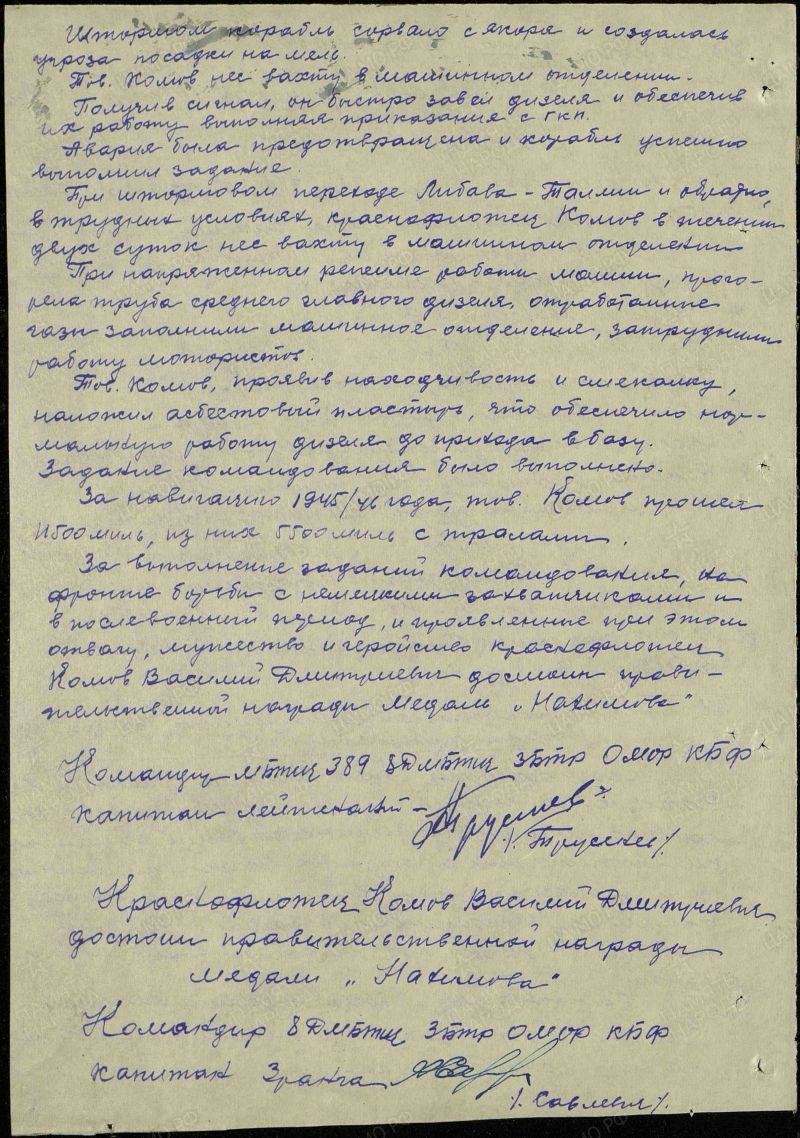 Штормом корабль сорвало с якоря и создалась
угроза посадки на мель.
Тов. Комов нес вахту в машинном отделении.
Получив сигнал, он быстро завел дизеля и обеспечив
их работу выполняя приказание с ГКП.
Авария была предотвращена и корабль успешно
выполнил задание.
При штормовом переходе Либава-Таллин и обратно,
в трудных условиях, краснофлотец Комов в течении
двух суток нес вахту в машинном отделении
При напряженном режиме работы машин, прого-
рела труба среднего главного дизеля, отработанные
газы заполнили машинное отделение, затруднили
работу мотористов.
Тов. Комов, проявив находчивость и смекалку,
наложил асбестовый пластырь, что обеспечило нор-
мальную работу дизеля до прихода в базу.
Задание командования было выполнено.
За навигацию 1945/46 года, тов. Комов прошел
миль, из них миль с тралами.
За выполнение заданий командования, на
фронте борьбы с немецкими захватчиками и
в послевоенный период, и проявленные при этом
отвагу, мужество и геройство краснофлотец
Комов Василий Дмитриевич достоин прави-
тельственной награды медаль „Нахимова"
Командир МБТЩ 389 8ДМБТЩ 3БТР ОМОР КБФ
капитан лейтенант -
/. Трусли /.
Краснофлотец Комов Василий Дмитриевич
достоин правительственной награды
медали „Нахимова"
Командир 8ДМБТЩ 3БТР ОМОР КБФ
капитан 3 ранга
/. Савлевич /.